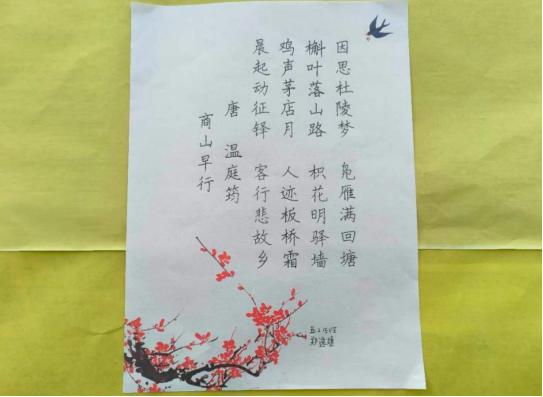 商山早行
唐 温庭筠
晨起动征铎 客行悲故乡
鸡声茅店月 人迹板桥霜
槲叶落山路 枳花明驿墙
因思杜陵梦 凫雁满回塘